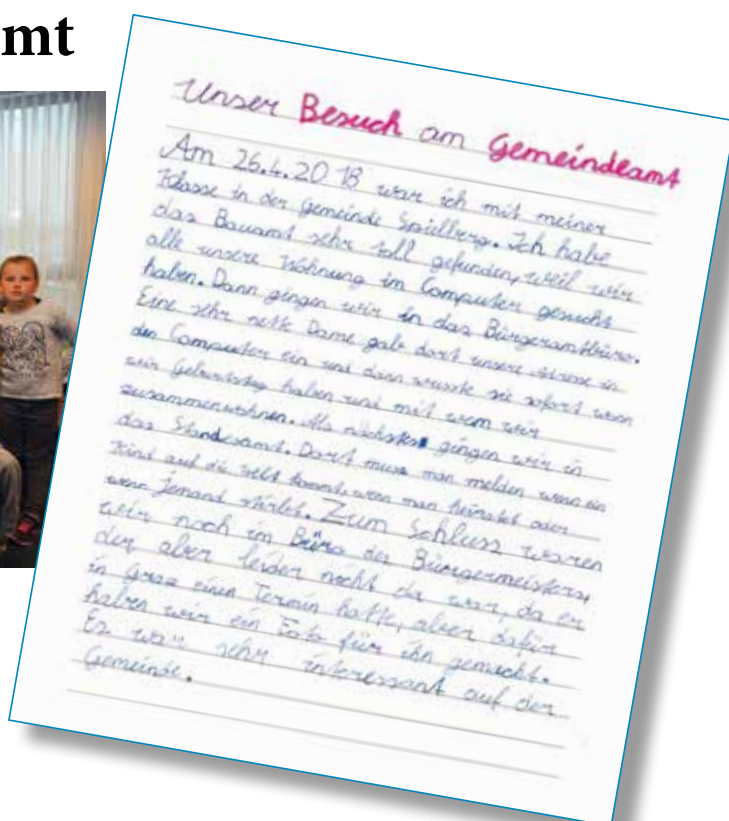 mt
Unser Besuch am Gemeindeamt
Am 26.4.2018 war ich mit meiner
Klasse in der Gemeinde Spielberg. Ich habe
das Bauamt sehr toll gefunden, weil wir
alle unsere Wohnung im Computer gesucht
haben. Dann gingen wir in das Bürgeramtbüro.
Eine sehr nette Dame gab dort unsere Adresse in
den Computer ein und dann wusste sie sofort wann
wir Geburtstag haben und mit wem wir
zusammenwohnen. Als nächstes gingen wir in
das Standesamt. Dort muss man melden wenn ein
Kind auf die Welt kommt, wenn man heiratet oder
wenn Jemand stirbt. Zum Schluss waren
wir noch im Büro des Bürgermeisters,
der aber leider nicht da war, da er
in Graz einen Termin hatte, aber dafür
haben wir ein Foto für ihn gemacht.
Es war sehr interessant auf der
Gemeinde.